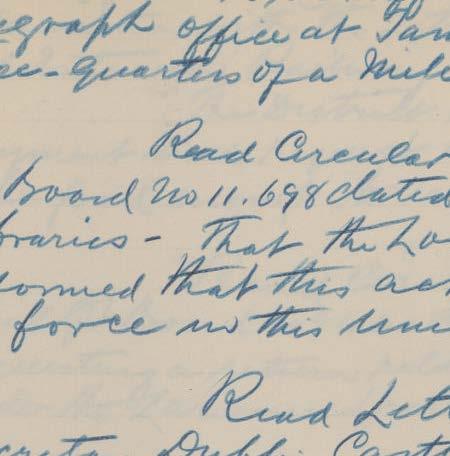 egraph office at Tam
ee-quarters of a Mile
Read Circular
Board No 11.698 dated
braries - That the Lo
formed that this act
force in this Uni
Read Lett
creta Dublin Cast